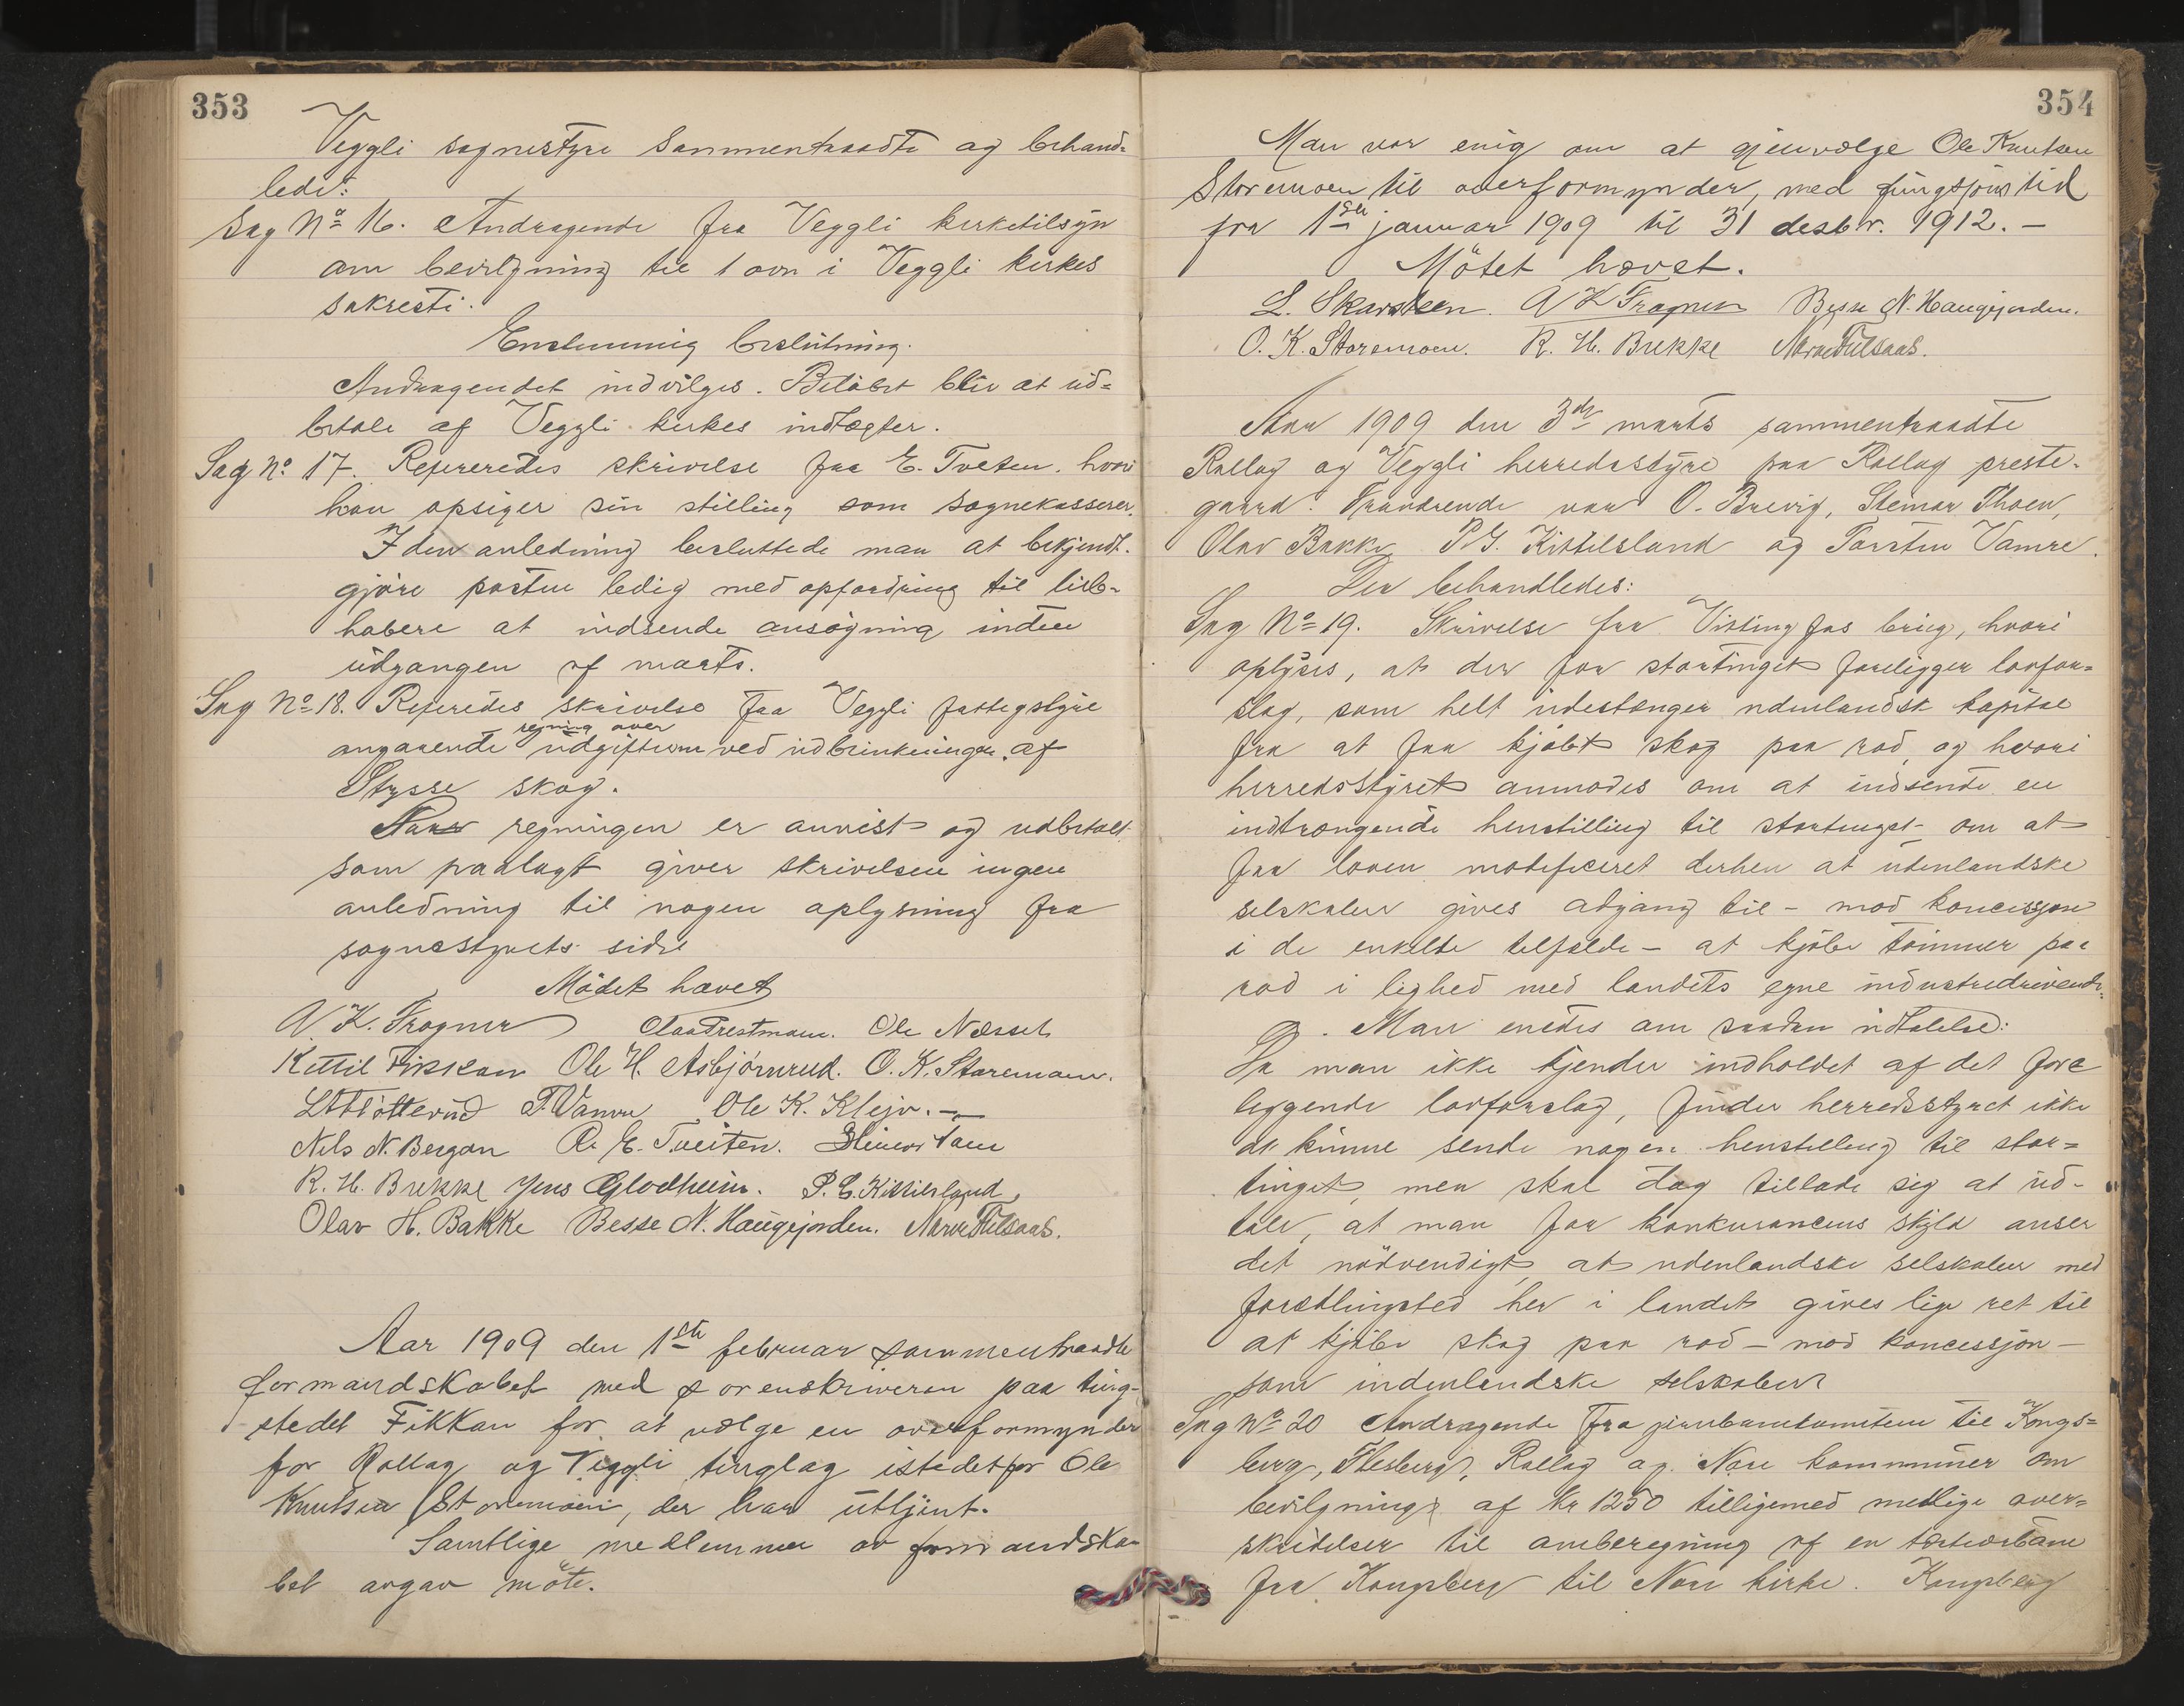 353
Veggli sognestyre sammentraadte og behand-
lede:
Sag No 16. Andragende fra Veggli kirketilsyn
om bevilgning til 1 ovn i Veggli kirkes
sakresti.
Enstemmig beslutning.
Andragendet indvilges. Beløbet blir at ud-
betale af Veggli kirkes indtægter.
Sag No 17. Refereredes skrivelse fra E. Tveten, hvori
han opsiger sin stilling som sognekasserer.
I den anledning besluttede man at bekjendt-
gjøre posten ledig med opfordring til lieb-
habere at indsende ansøgning inden
udgangen af marts.
Sag No 18. Refereredes skrivelse fra Veggli fattigstyre
regning over
angaaende udgifterne ved udbrinkningen af
skog.
Naar regningen er anvist og udbetalt
som paalagt giver skrivelsen ingen
anledning til nogen oplysning fra
sognestyrets side
Mødet hævet
N. K. Trogner Ole Næsset
Kittil Fikkan Ole H. Asbjørnrud. O. K. Storemoen.
T. Vamre Ole K. Klejv.
Nils N. Bergan R. E. Tveiten. Steinar
R. H. Brekke Jens Glodheim. P. G. Kittilsland,
Olav H. Bakke Besse N. Haugejorden. Narve
Aar 1909 den 1ste februar sammentraadte
formandskabet med sorenskriveren paa ting-
stedet Fikkan for at vælge en overformynder
for Rollag og Veggli tinglag istedetfor Ole
Knutsen Storemoen, der har uttjent.
Samtlige medlemmer av formandska-
bet avgav møte.
354
Man var enig om at gjenvælge Ole Knutsen
Storemoen til overformynder, med fungsjonstid
fra 1ste januar 1909 til 31 desbr. 1912. –
Møtet hævet.
L. Skarsteen. N K Trogner Besse N. Haugejorden.
O. K. Storemoen. R. H. Brekke Narve
Aar 1909 den 3die marts sammentraadte
Rollag og Veggli herredsstyre paa Rollag preste-
gaard. Fraværende var O. Brevig, Steinar Thoen,
Olav Bakke P. G. Kittilsland og Torsten Vamre.
Der behandledes:
Sag No 19. Skrivelse fra Vittingfos brug, hvori
oplyses, at der for stortinget foreligger lovfor-
slag, som helt udestænger udenlandsk kapital
fra at faa kjøbt skog paa rod, og hvori
herredsstyret anmodes om at indsende en
indtrængende henstilling til stortinget om at
faa loven modificeret derhen at udenlandske
selskaber gives adgang til – mod koncessjon
i de enkelte tilfælde – at kjøbe tømmer paa
rod i lighed med landets egne industridrivende.
Man enedes om saadan udtalelse:
Da man ikke kjender indholdet af det fore
liggende lovforslag, finder herredsstyret ikke
at kunne sende nogen henstilling til stor-
tinget, men skal dog tillade sig at ud-
tale, at man for konkurancens skyld anser
det nødvendigt, at udenlandske selskaber med
forædlingssted her i landet gives lige ret til
at kjøbe skog paa rod – mod koncessjon –
som indenlandske selskaber
Sag No 20 Andragende fra jernbanekomiteen til Kongs-
berg, Flesberg, Rollag og Nore kommuner om
bevilgning af kr 1250 tilligemed mulige over-
skridelser til omberegning af en
fra Kongsberg til Nore kirke. Kongsberg